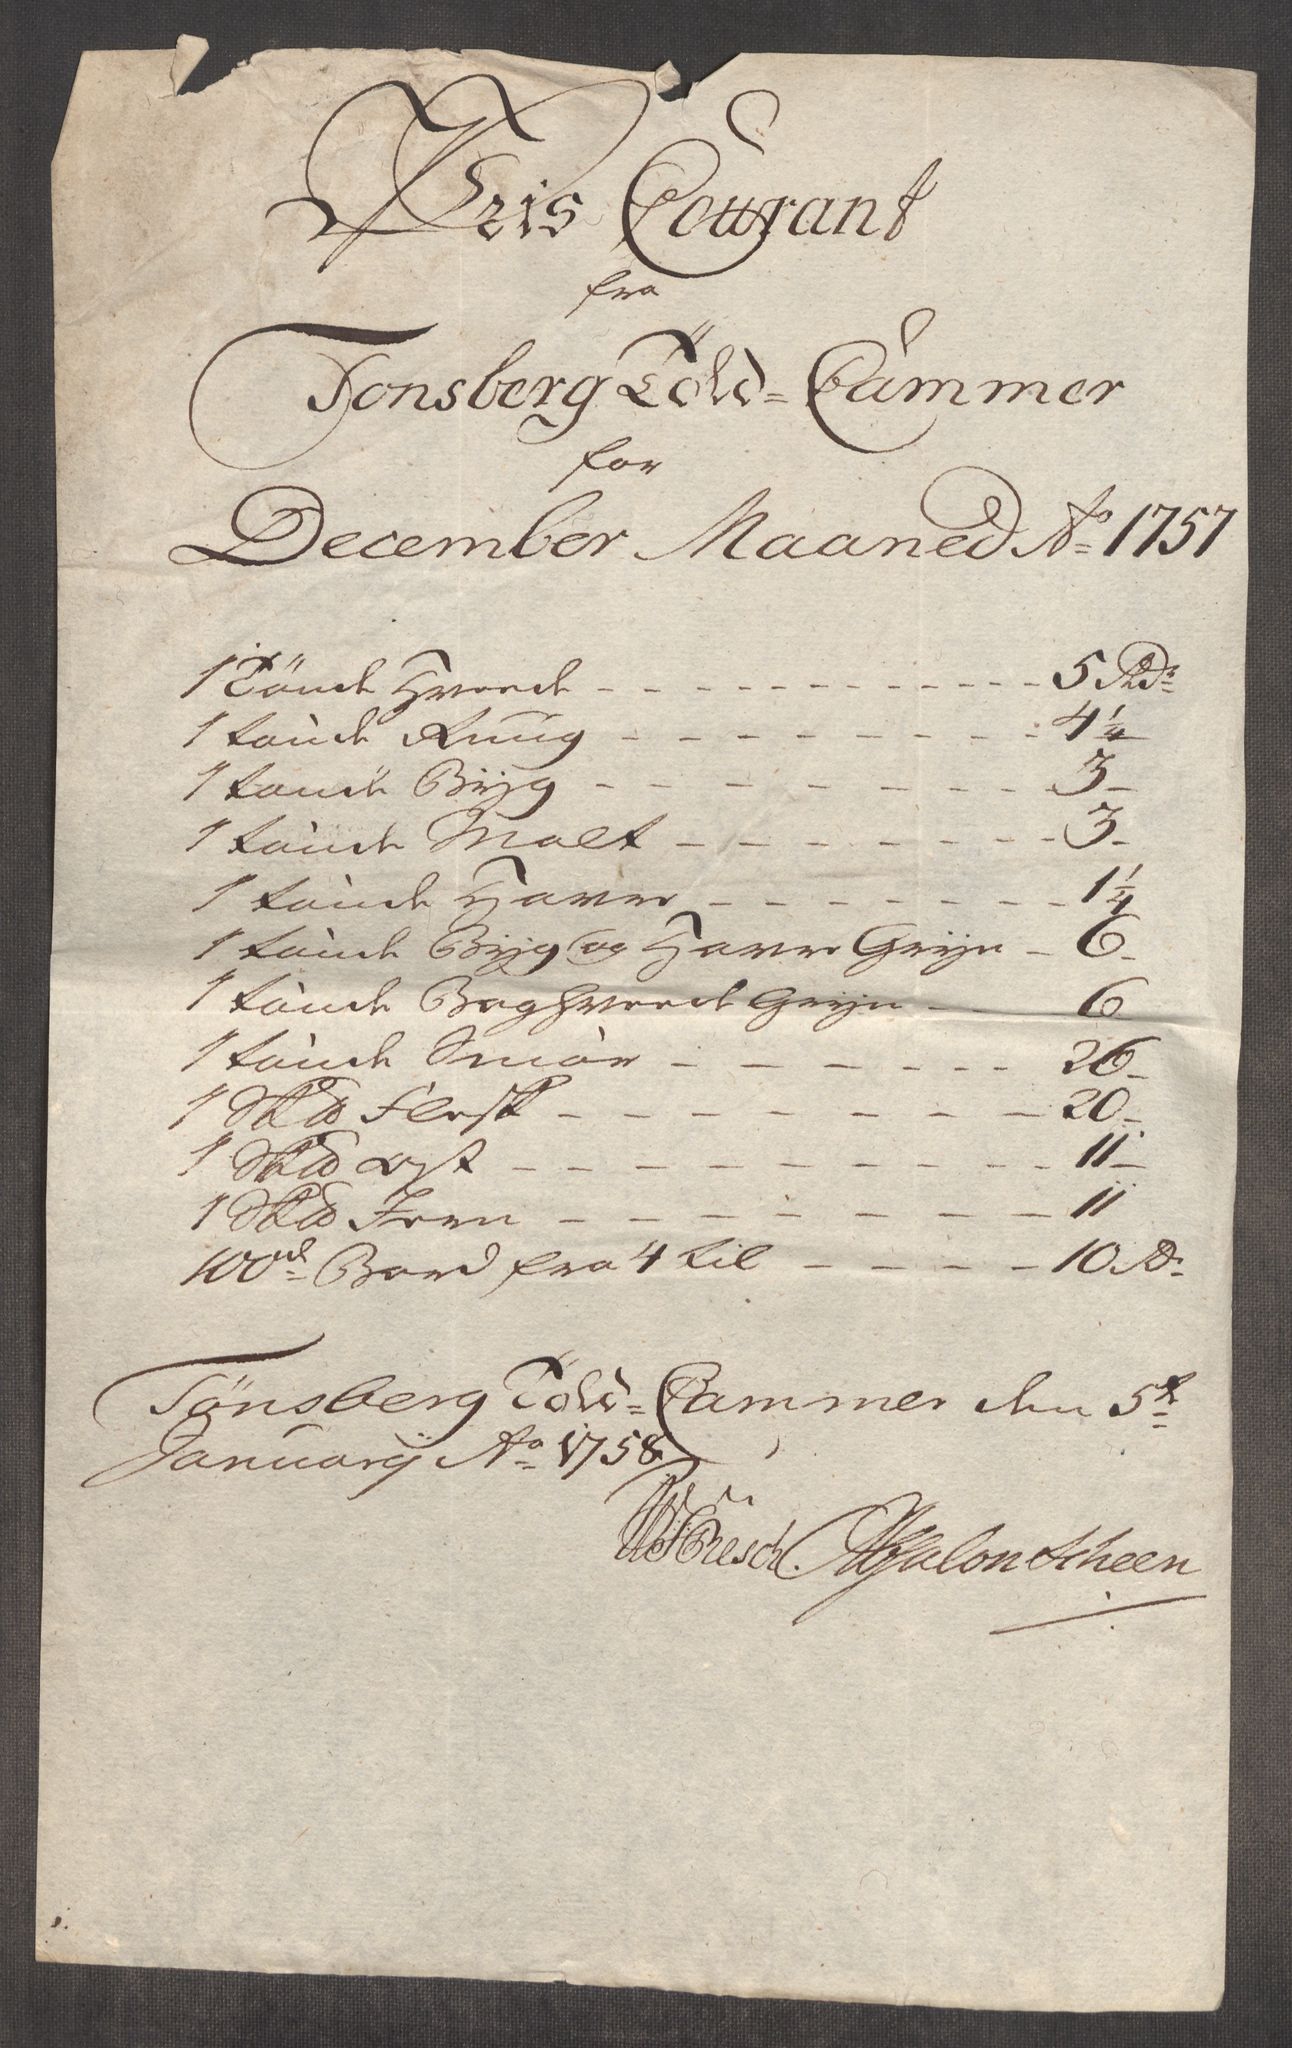 Pris Courant
fra
Tonsberg Told=Cammer
for
December Maaned Ao 1757
1 Tönde Hvede - - - - - - - - - - - 5 Rdr
1 tönde Ruug - - - - - - - - - 4 1/4
1 tönde Bÿg - - - - - - - - 3 -
1 tönde Malt - - - - - - - 3 -
1 tönde Havre - - - - - - - 1 1/4
1 tönde Bÿg og Havre Grÿn - 6 -
1 tönde Boghvede Grÿn - - 6
1 tönde Smör - - - - - - - 26 -
1 Skd Flesk - - - - - - - - 20 -
1 Skd Ost - - - - - - - - - 11 -
1 Skd Jern - - - - - - - - 11
100de Bord fra 4 til - - - - - 10 Rdr
Tönsberg Told=Cammer den 5te
Januarÿ Ao 1758
Absalon Scheen